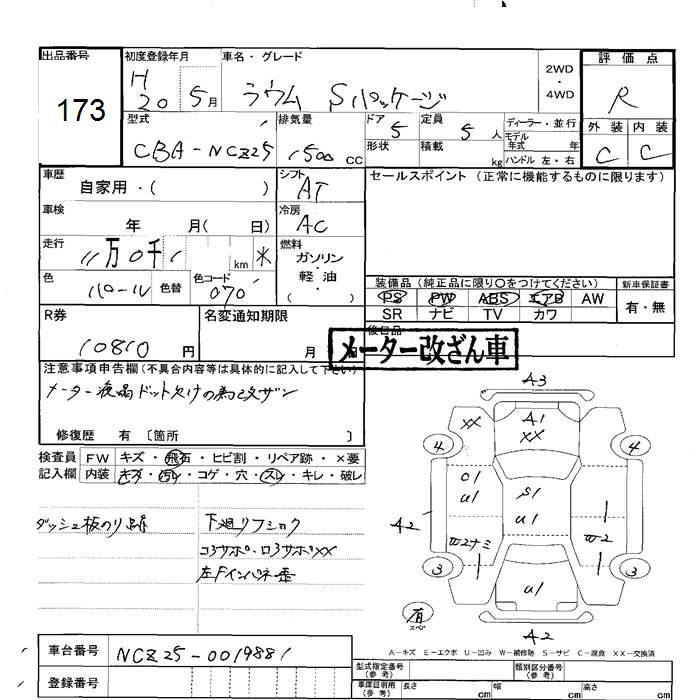 出品番号 初度登録年月 車名・グレード 2WD・4WD 評価点
173 H20 5月 ラウム Sパッケージ R
型式 排気量 ドア 5 定員 5人 ディーラー・並行 外装 内装
CBA-NCZ25 1500cc 形状 積載 kg モデル年式 年 ハンドル 左・右 C C
車歴 自家用・( ) シフト AT セールスポイント (正常に機能するものに限ります)
車検 年 月( 日) 冷房 AC
走行 11万0千 km 燃料 ガソリン・軽油
( )
色 パール 色替 色コード 070 装備品(純正品に限り○をつけてください) 新車保証書
PS PW ABS エアB AW 有・無
SR ナビ TV カワ
R券 10810円 名変通知期限 月 後日品
メーター改ざん車
注意事項申告欄(不具合内容等は具体的に記入して下さい)
メーター液晶ドット欠けの為改ザン
修復歴 有 〔箇所 〕
検査員 FW キズ・飛石・ヒビ割・リペア跡・×要
記入欄 内装 キズ・汚レ・コゲ・穴・スレ・キレ・破レ
ダッシュ板のり跡 下廻りフショク
コアサポ・ロアサポXX
左Fインパネ歪
A3
XX A1
XX
4 4
C1
U1 S1
U1
A2 W2ナミ W2
3 3
U1
有
スペア
A2
A-キズ E-エクボ U-凹み W-補修跡 S-サビ C-腐食 XX-交換済
車台番号 NCZ25-0019881
登録番号
型式指定番号(参考) 類別区分番号(参考)
車庫証明用(参考) 長さ cm 幅 cm 高さ cm